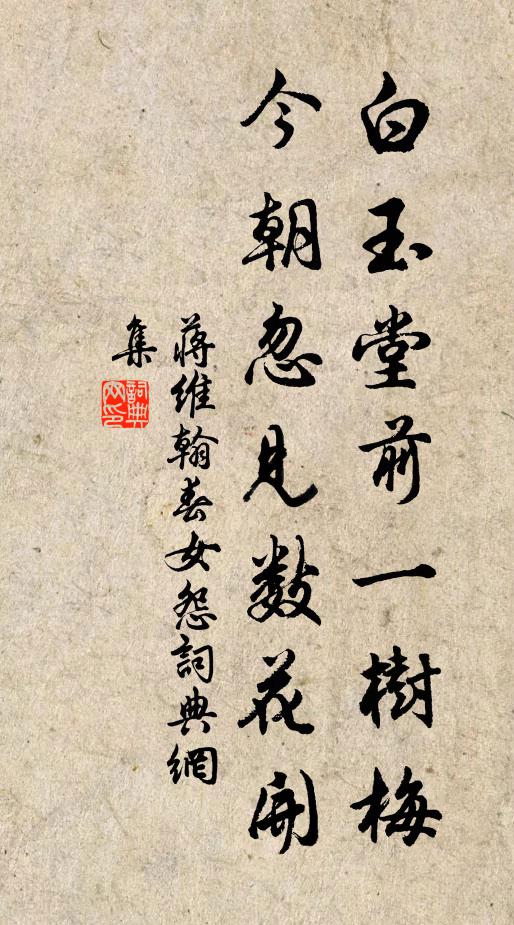 白玉堂前一樹梅
今朝忽見數花開
蔣維翰春女怨詞典網
集
詞典
网印